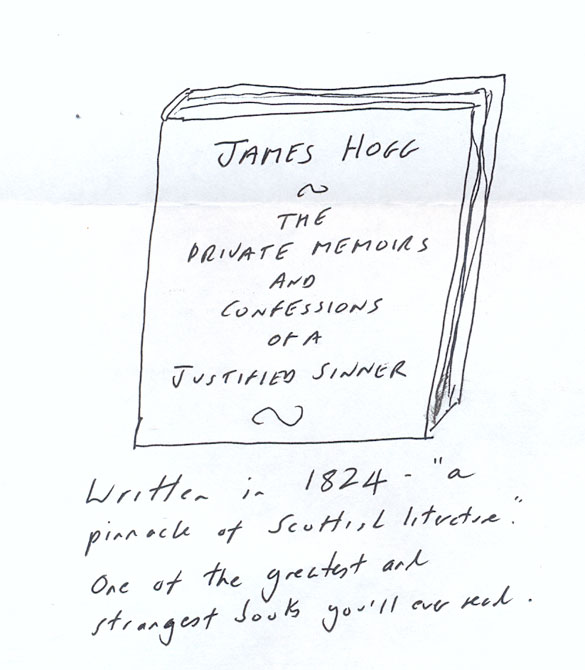 JAMES HOGG
~
THE
PRIVATE MEMOIRS
AND
CONFESSIONS
OF A
JUSTIFIED SINNER
~
Written in 1824 - "a
pinnacle of Scottish literature".
One of the greatest and
strangest books you'll ever read.